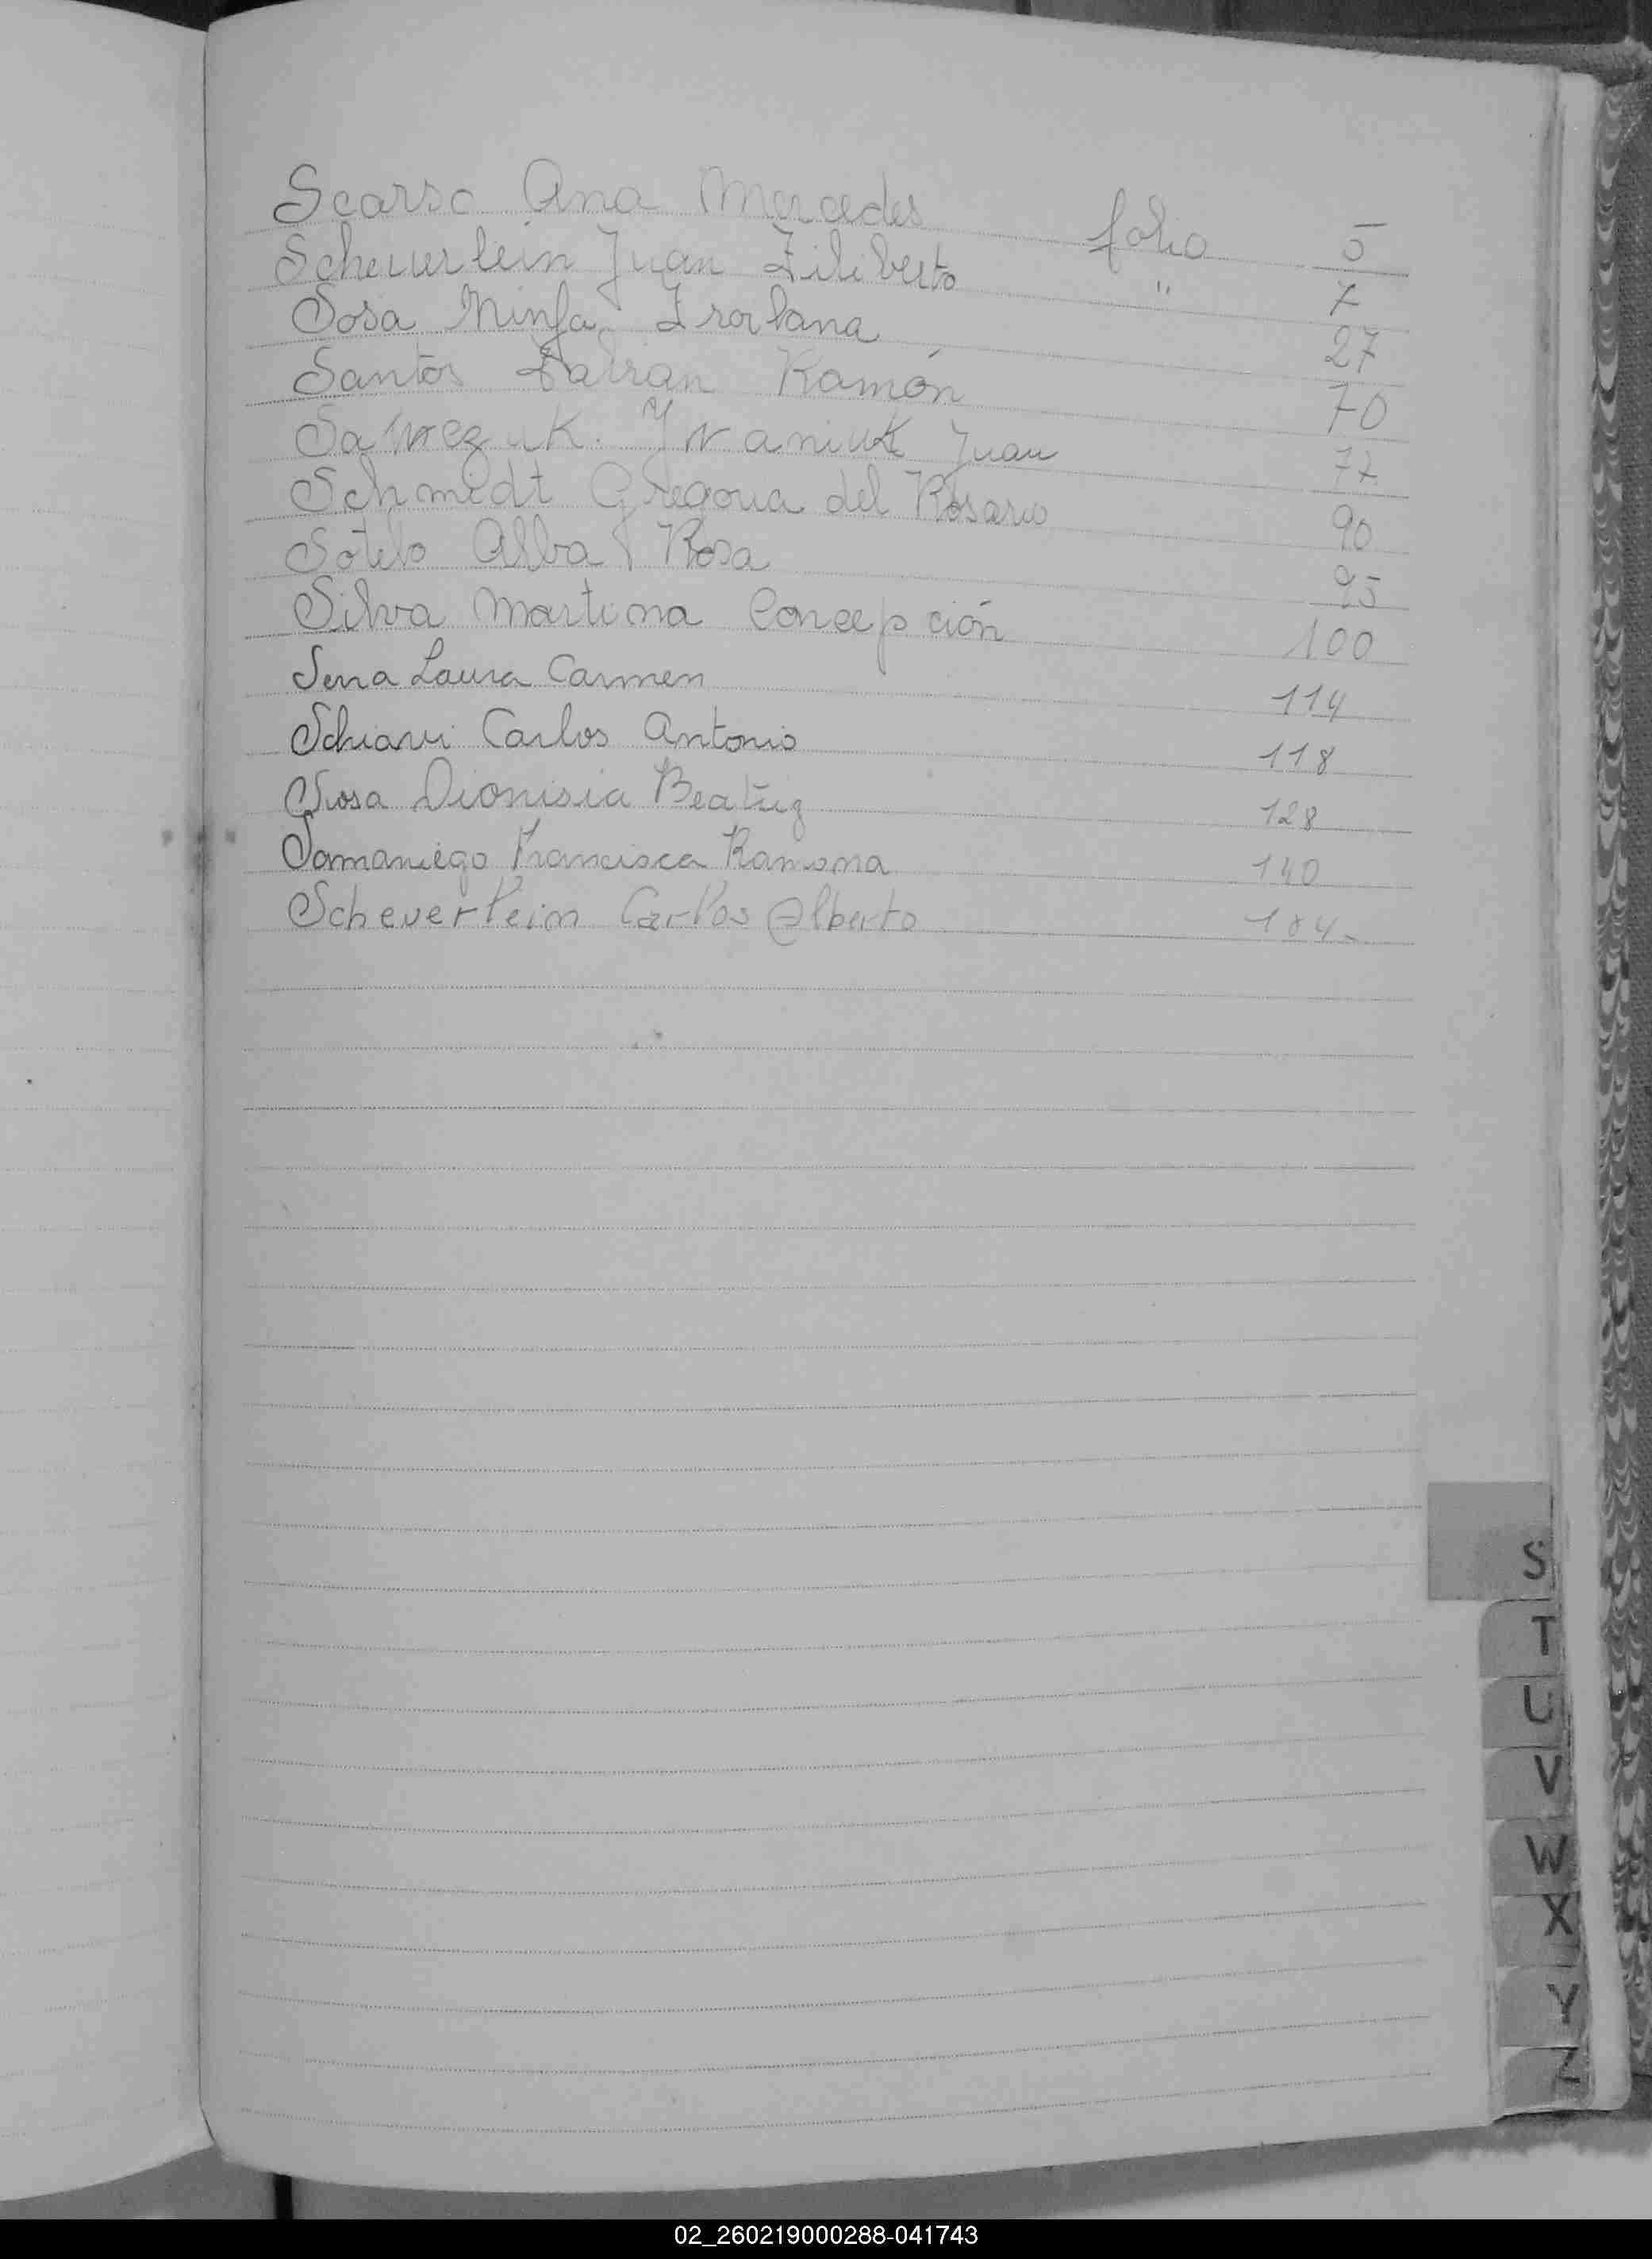 Scarso Ana Mercedes folio 5
Scheuerlein Juan Filiberto " 7
Sosa Ninfa Froilana 27
Santos Fabian Ramón 70
Sawczuk Iwaniuk Juan 77
Schmidt Gregoria del Rosario 90
Sotelo Alba Rosa 95
Silva Martina Concepción 100
Sena Laura Carmen 114
Schiavi Carlos Antonio 118
Sosa Dionisia Beatriz 128
Samaniego Francisca Ramona 140
Scheverlein Carlos Alberto 184
S
T
U
V
W
X
Y
Z
02_260219000288-041743